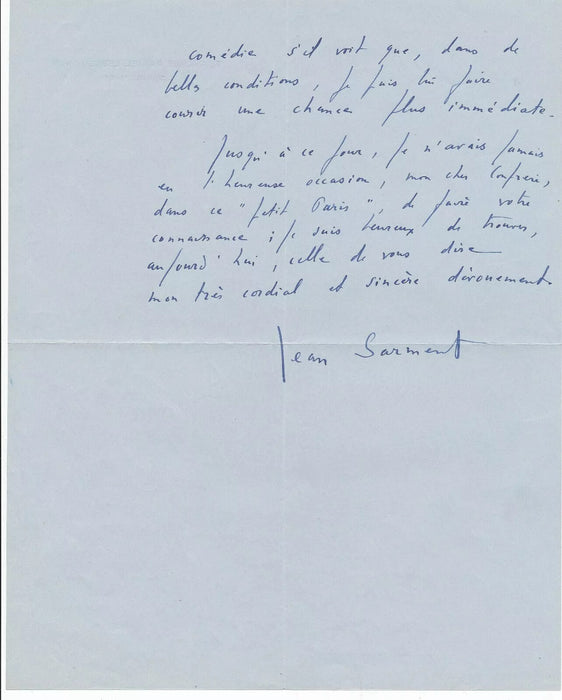 comédie s'il voit que, dans de
belles conditions, je puis lui faire
courir une chance plus immédiate.
Jusqu'à ce jour, je n'avais jamais
eu l'heureuse occasion, mon cher Confrère,
dans ce "petit Paris", de faire votre
connaissance ; je suis heureux de trouver,
aujourd'hui, celle de vous dire
mon très cordial et sincère dévouement.
Jean Sarment